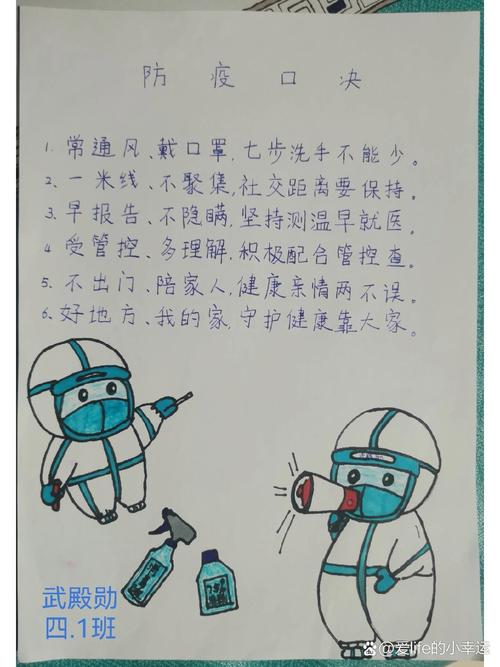 防疫口决
1. 常通风、戴口罩,七步洗手不能少。
2. 一米线、不聚集,社交距离要保持。
3. 早报告、不隐瞒,坚持测温早就医。
4 受管控、多理解,积极配合管控查。
5. 不出门、陪家人,健康亲情两不误。
6. 好地方、我的家,守护健康靠大家。
武殿勋
四.1班
@爱life的小幸运